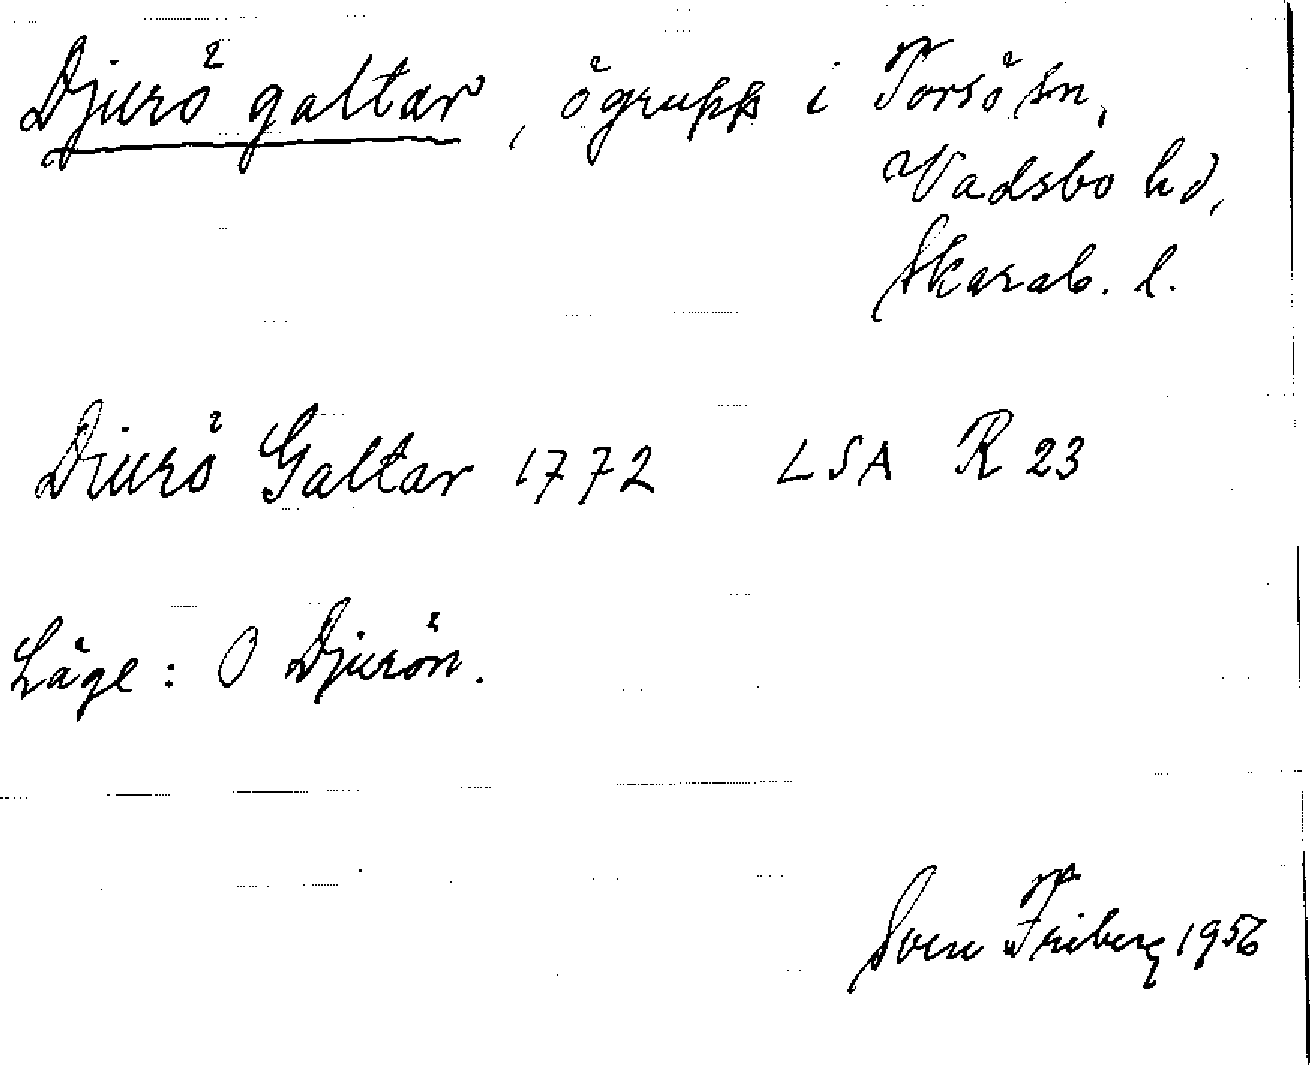 Djurö galtar, ögrupp i Torsö sn,
Vadsbo hd,
Skarab. l.
Diurö Galtar 1772 LSA R 23
Läge: O Djurön.
Sven Friberg 1956